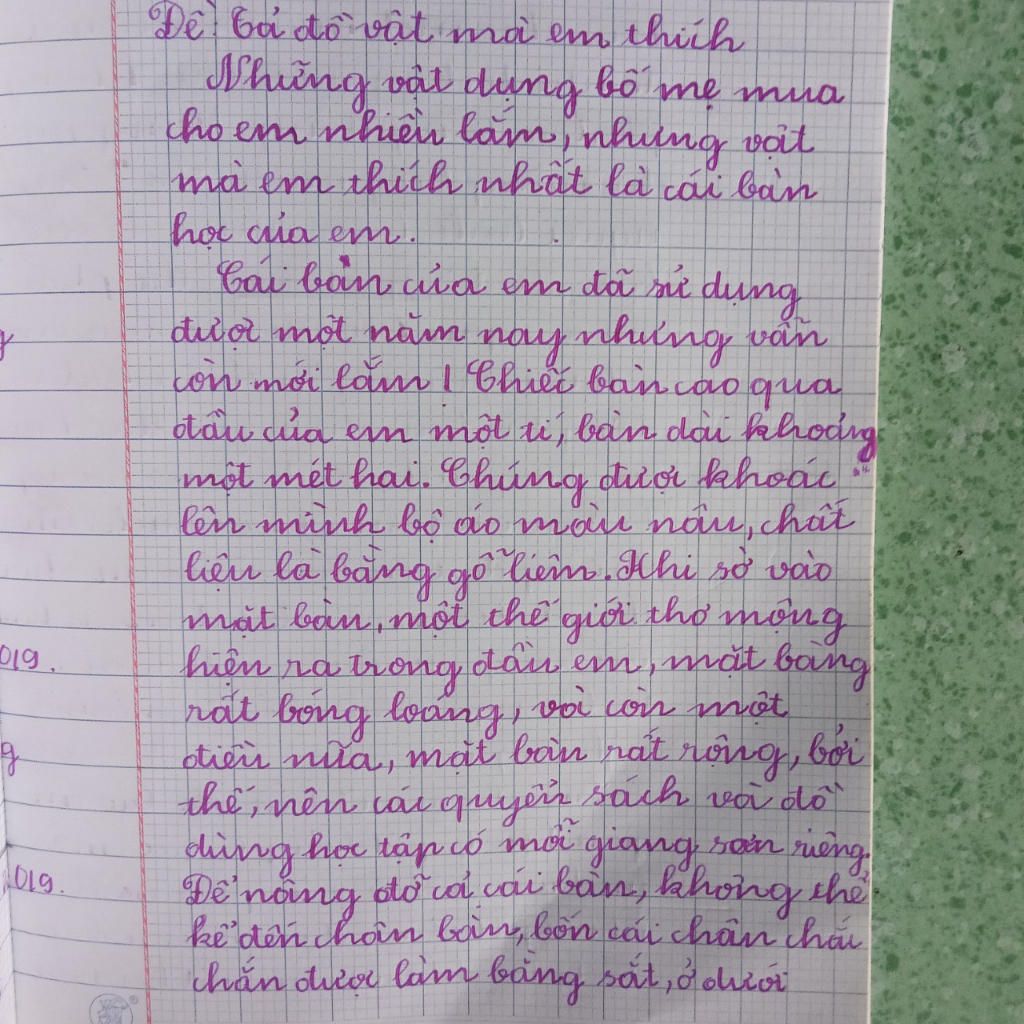 Đề: Tả đồ vật mà em thích
Những vật dụng bố mẹ mua
cho em nhiều lắm, nhưng vật
mà em thích nhất là cái bàn
học của em.
Cái bàn của em đã sử dụng
được một năm nay nhưng vẫn
còn mới lắm! Chiếc bàn cao qua
đầu của em một tí, bàn dài khoảng
một mét hai. Chúng được khoác
lên mình bộ áo màu nâu, chất
liệu là bằng gỗ liêm. Khi sờ vào
mặt bàn, một thế giới thơ mộng
hiện ra trong đầu em, mặt bàng
rất bóng loáng, và còn một
điều nữa, mặt bàn rất rộng, bởi
thế, nên các quyển sách và đồ
dùng học tập có mỗi giang sơn riêng.
Để nâng đỡ cả cái bàn, không thể
kể đến chân bàn, bốn cái chân chắc
chắn được làm bằng sắt, ở dưới
019.
019.